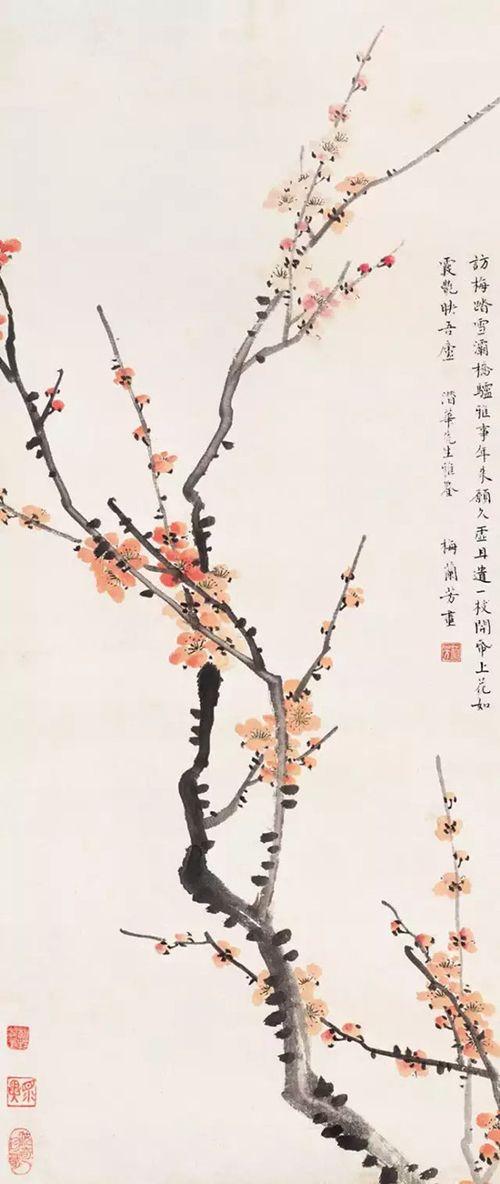 訪梅踏雪灞橋驢雅事年来願久虛且遣一枝開帋上花如
霞艷映吾廬 潛華先生雅鋻 梅蘭芳畫